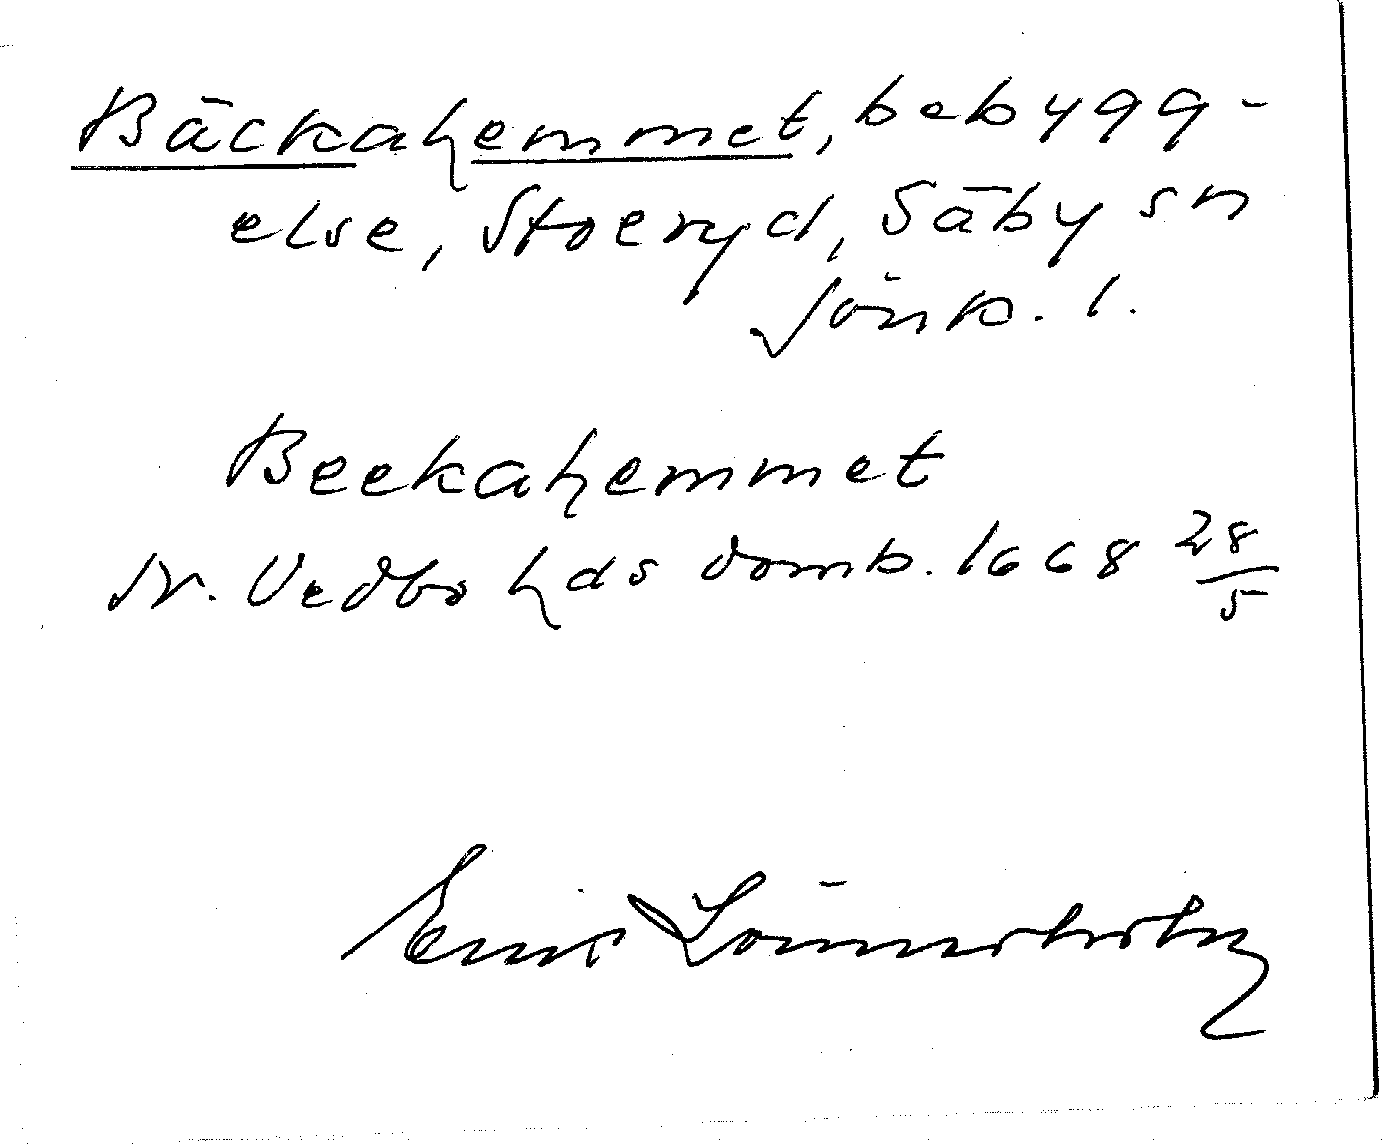 Bäckahemmet, bebygg-
else, Stoeryd, Säby sn
Jönk. l.
Beekahemmet
N. Vedbo hds domb. 1668 28/5
Eric Lönnerholm